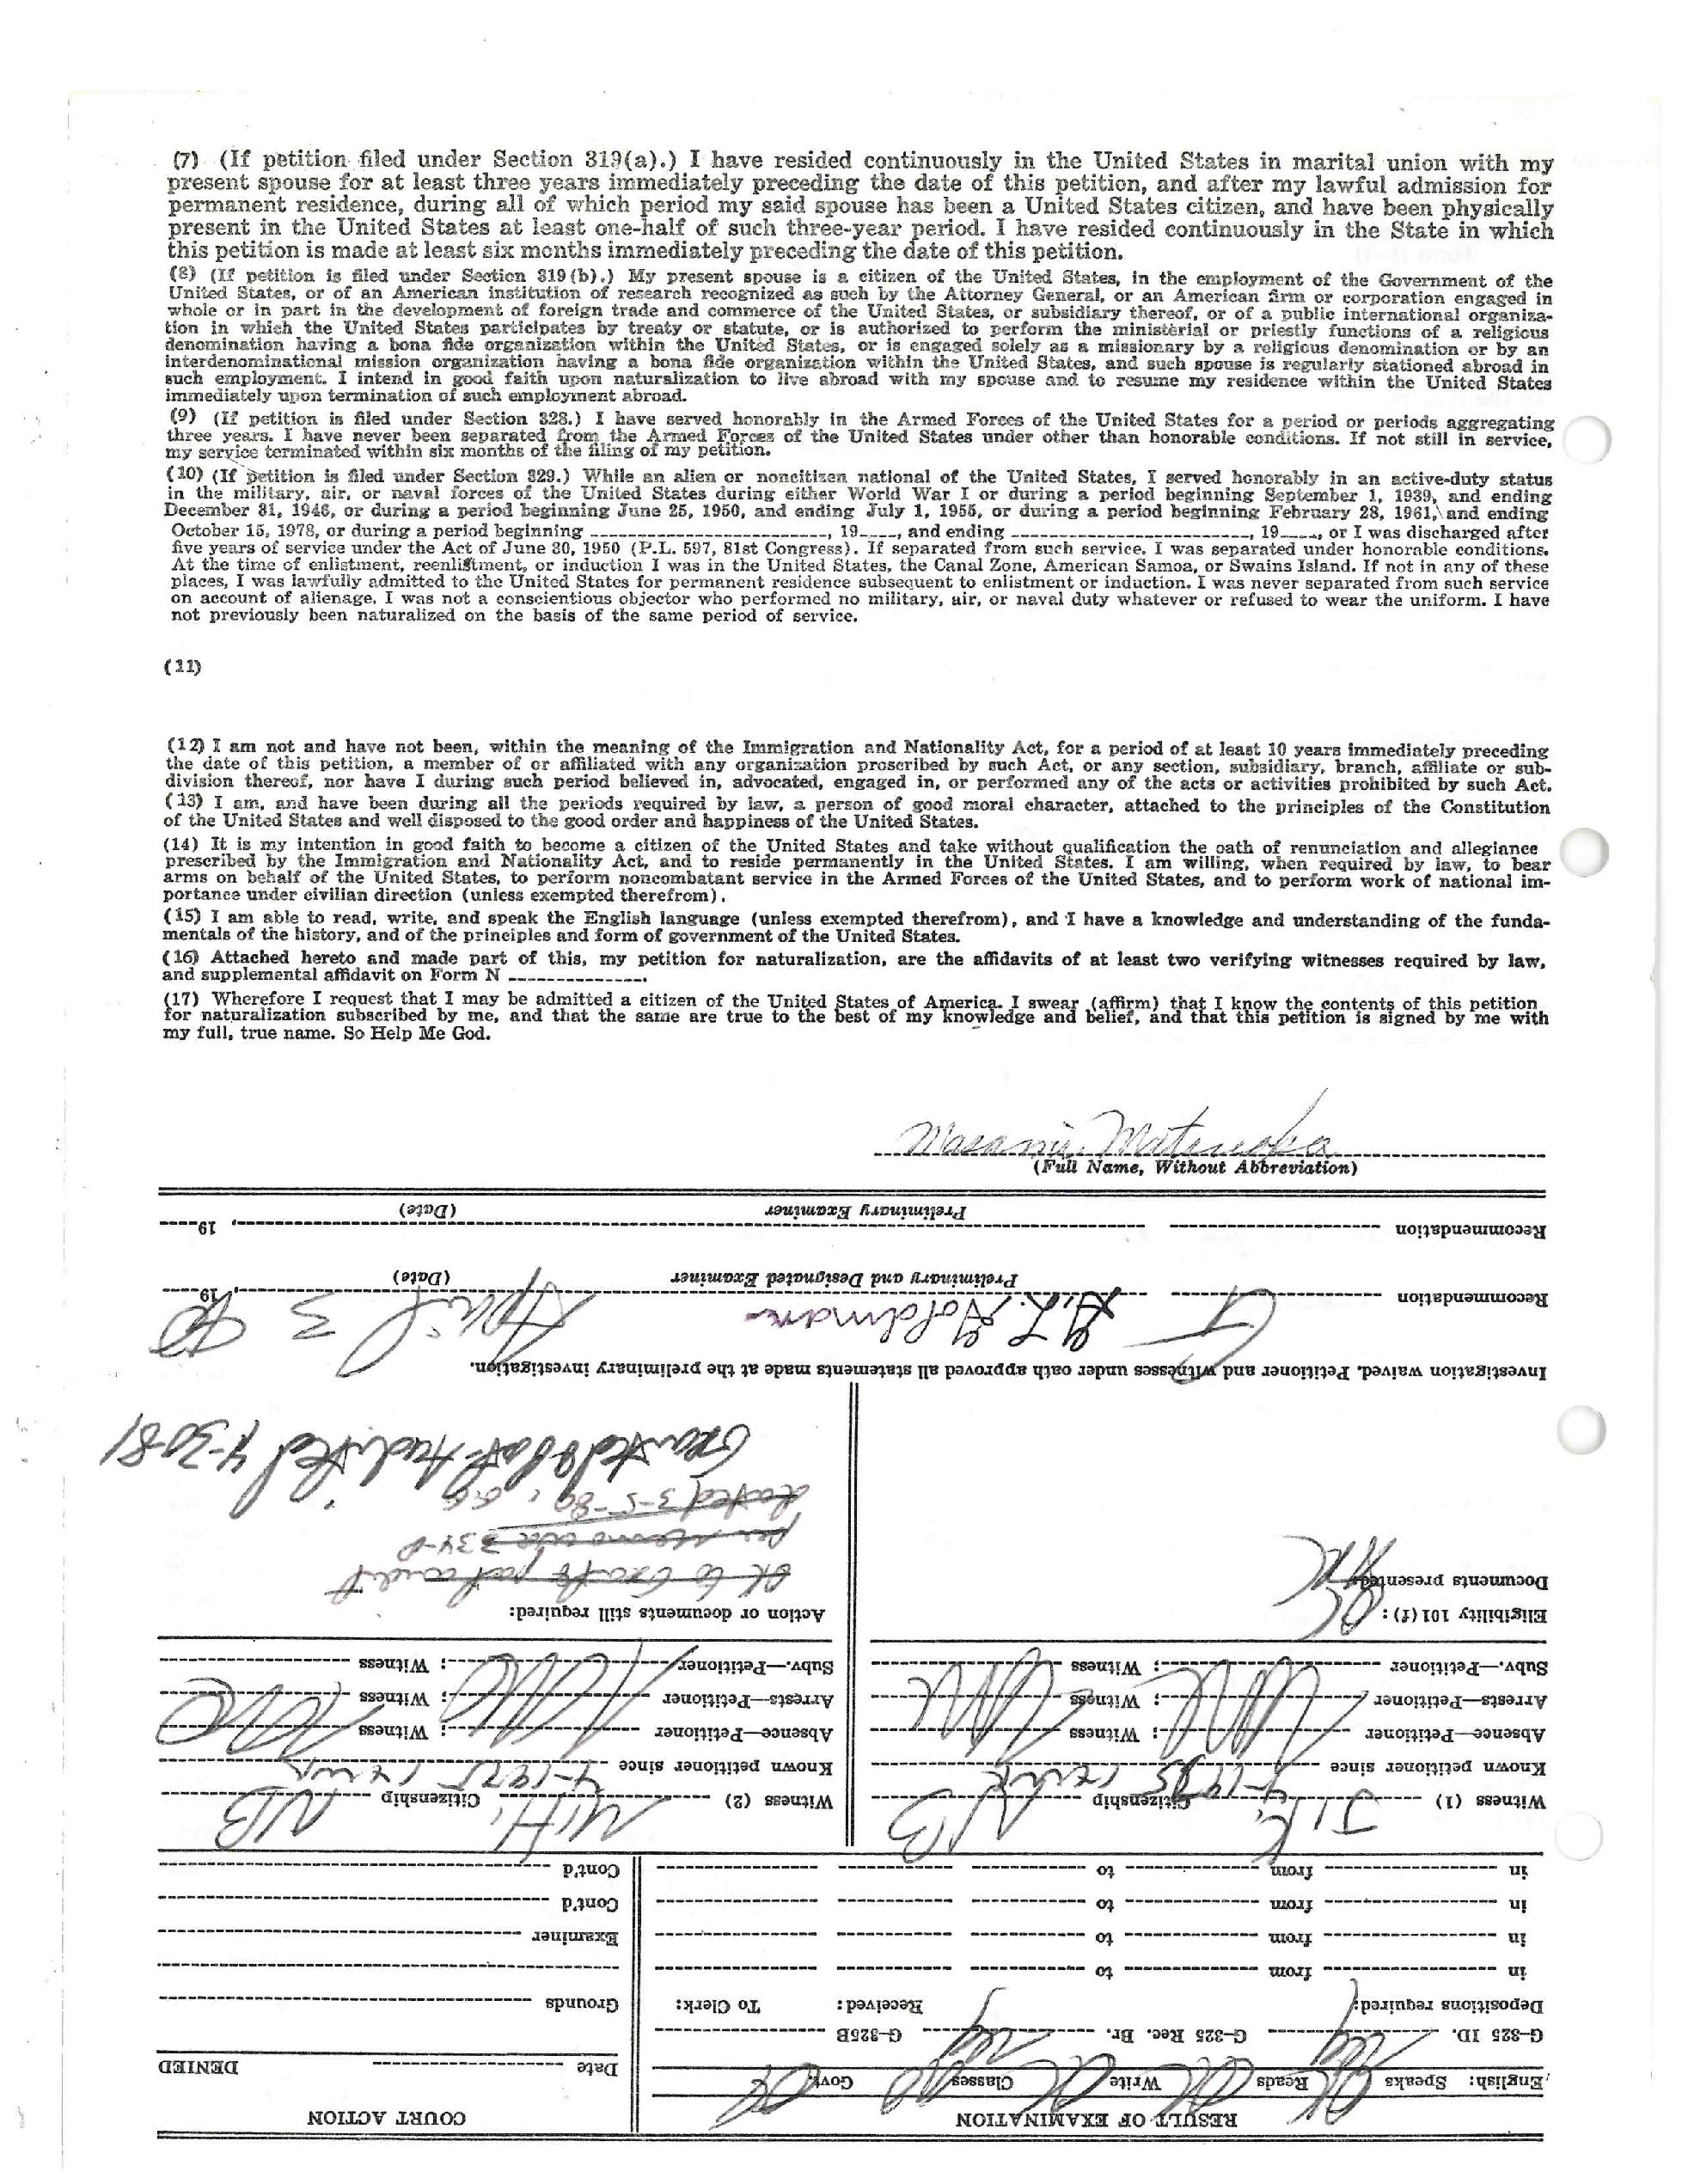 (7) (If petition filed under Section 319(a).) I have resided continuously in the United States in marital union with my
present spouse for at least three years immediately preceding the date of this petition, and after my lawful admission for
permanent residence, during all of which period my said spouse has been a United States citizen, and have been physically
present in the United States at least one-half of such three-year period. I have resided continuously in the State in which
this petition is made at least six months immediately preceding the date of this petition.
(8) (If petition is filed under Section 319(b).) My present spouse is a citizen of the United States, in the employment of the Government of the
United States, or of an American institution of research recognized as such by the Attorney General, or an American firm or corporation engaged in
whole or in part in the development of foreign trade and commerce of the United States, or subsidiary thereof, or of a public international organiza-
tion in which the United States participates by treaty or statute, or is authorized to perform the ministerial or priestly functions of a religious
denomination having a bona fide organization within the United States, or is engaged solely as a missionary by a religious denomination or by an
interdenominational mission organization having a bona fide organization within the United States, and such spouse is regularly stationed abroad in
such employment. I intend in good faith upon naturalization to live abroad with my spouse and to resume my residence within the United States
immediately upon termination of such employment abroad.
(9) (If petition is filed under Section 328.) I have served honorably in the Armed Forces of the United States for a period or periods aggregating
three years. I have never been separated from the Armed Forces of the United States under other than honorable conditions. If not still in service,
my service terminated within six months of the filing of my petition.
(10) (If petition is filed under Section 329.) While an alien or noncitizen national of the United States, I served honorably in an active-duty status
in the military, air, or naval forces of the United States during either World War I or during a period beginning September 1, 1939, and ending
December 31, 1946, or during a period beginning June 25, 1950, and ending July 1, 1955, or during a period beginning February 28, 1961, and ending
October 15, 1978, or during a period beginning ________, 19____, and ending ________, 19____, or I was discharged after
five years of service under the Act of June 30, 1950 (P.L. 597, 81st Congress). If separated from such service, I was separated under honorable conditions.
At the time of enlistment, reenlistment, or induction I was in the United States, the Canal Zone, American Samoa, or Swains Island. If not in any of these
places, I was lawfully admitted to the United States for permanent residence subsequent to enlistment or induction. I was never separated from such service
on account of alienage. I was not a conscientious objector who performed no military, air, or naval duty whatever or refused to wear the uniform. I have
not previously been naturalized on the basis of the same period of service.
(11)
(12) I am not and have not been, within the meaning of the Immigration and Nationality Act, for a period of at least 10 years immediately preceding
the date of this petition, a member of or affiliated with any organization proscribed by such Act, or any section, subsidiary, branch, affiliate or sub-
division thereof, nor have I during such period believed in, advocated, engaged in, or performed any of the acts or activities prohibited by such Act.
(13) I am, and have been during all the periods required by law, a person of good moral character, attached to the principles of the Constitution
of the United States and well disposed to the good order and happiness of the United States.
(14) It is my intention in good faith to become a citizen of the United States and take without qualification the oath of renunciation and allegiance
prescribed by the Immigration and Nationality Act, and to reside permanently in the United States. I am willing, when required by law, to bear
arms on behalf of the United States, to perform noncombatant service in the Armed Forces of the United States, and to perform work of national im-
portance under civilian direction (unless exempted therefrom).
(15) I am able to read, write, and speak the English language (unless exempted therefrom), and I have a knowledge and understanding of the funda-
mentals of the history, and of the principles and form of government of the United States.
(16) Attached hereto and made part of this, my petition for naturalization, are the affidavits of at least two verifying witnesses required by law,
and supplemental affidavit on Form N ________.
(17) Wherefore I request that I may be admitted a citizen of the United States of America. I swear (affirm) that I know the contents of this petition
for naturalization subscribed by me, and that the same are true to the best of my knowledge and belief, and that this petition is signed by me with
my full, true name. So Help Me God.
Masami Matsuoka
(Full Name, Without Abbreviation)
RESULT OF EXAMINATION
English: Speaks OK Reads OK Write OK Classes no Govt. OK
G-325 ID. G-325 Rec. Br. G-325B
Depositions required: Received: To Clerk:
in from to
in from to
in from to
in from to
COURT ACTION
Date DENIED
Grounds
Examiner
Cont'd
Cont'd
Witness (1) J.K. Citizenship NB
Known petitioner since 4-1975
Absence—Petitioner ; Witness
Arrests—Petitioner ; Witness
Subv.—Petitioner ; Witness
Eligibility 101(f): OK
Documents presented:
Witness (2) M.H. Citizenship NB
Known petitioner since 4-1975
Absence—Petitioner ; Witness
Arrests—Petitioner ; Witness
Subv.—Petitioner ; Witness
Action or documents still required:
OK to
per memo 334-P
dated 3-5-80
4-30-81
Investigation waived. Petitioner and witnesses under oath approved all statements made at the preliminary investigation.
Recommendation G H.L. Goldman April 3, 19 80
Preliminary and Designated Examiner (Date)
Recommendation , 19
Preliminary Examiner (Date)